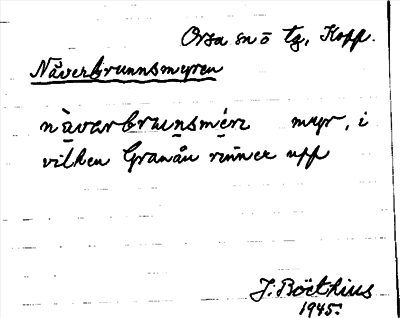 Orsa sn ö tg, Kopp.
Näverbrunnsmyren
nàvarbrunsmérı myr, i
vilken Granån rinner upp
J. Boëthius
1945.